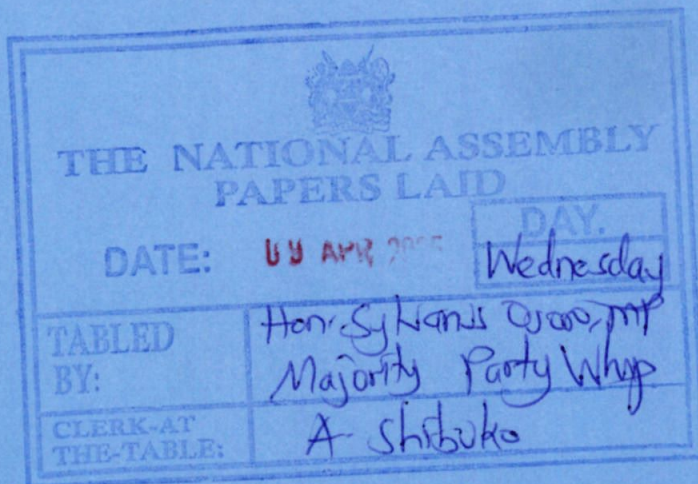 THE NATIONAL ASSEMBLY
PAPERS LAID
DATE: 09 APR 2025
DAY.
Wednesday
TABLED BY:
Hon. Sylvanus Osoro, MP
Majority Party Whip
CLERK-AT THE-TABLE:
A. Shibuko